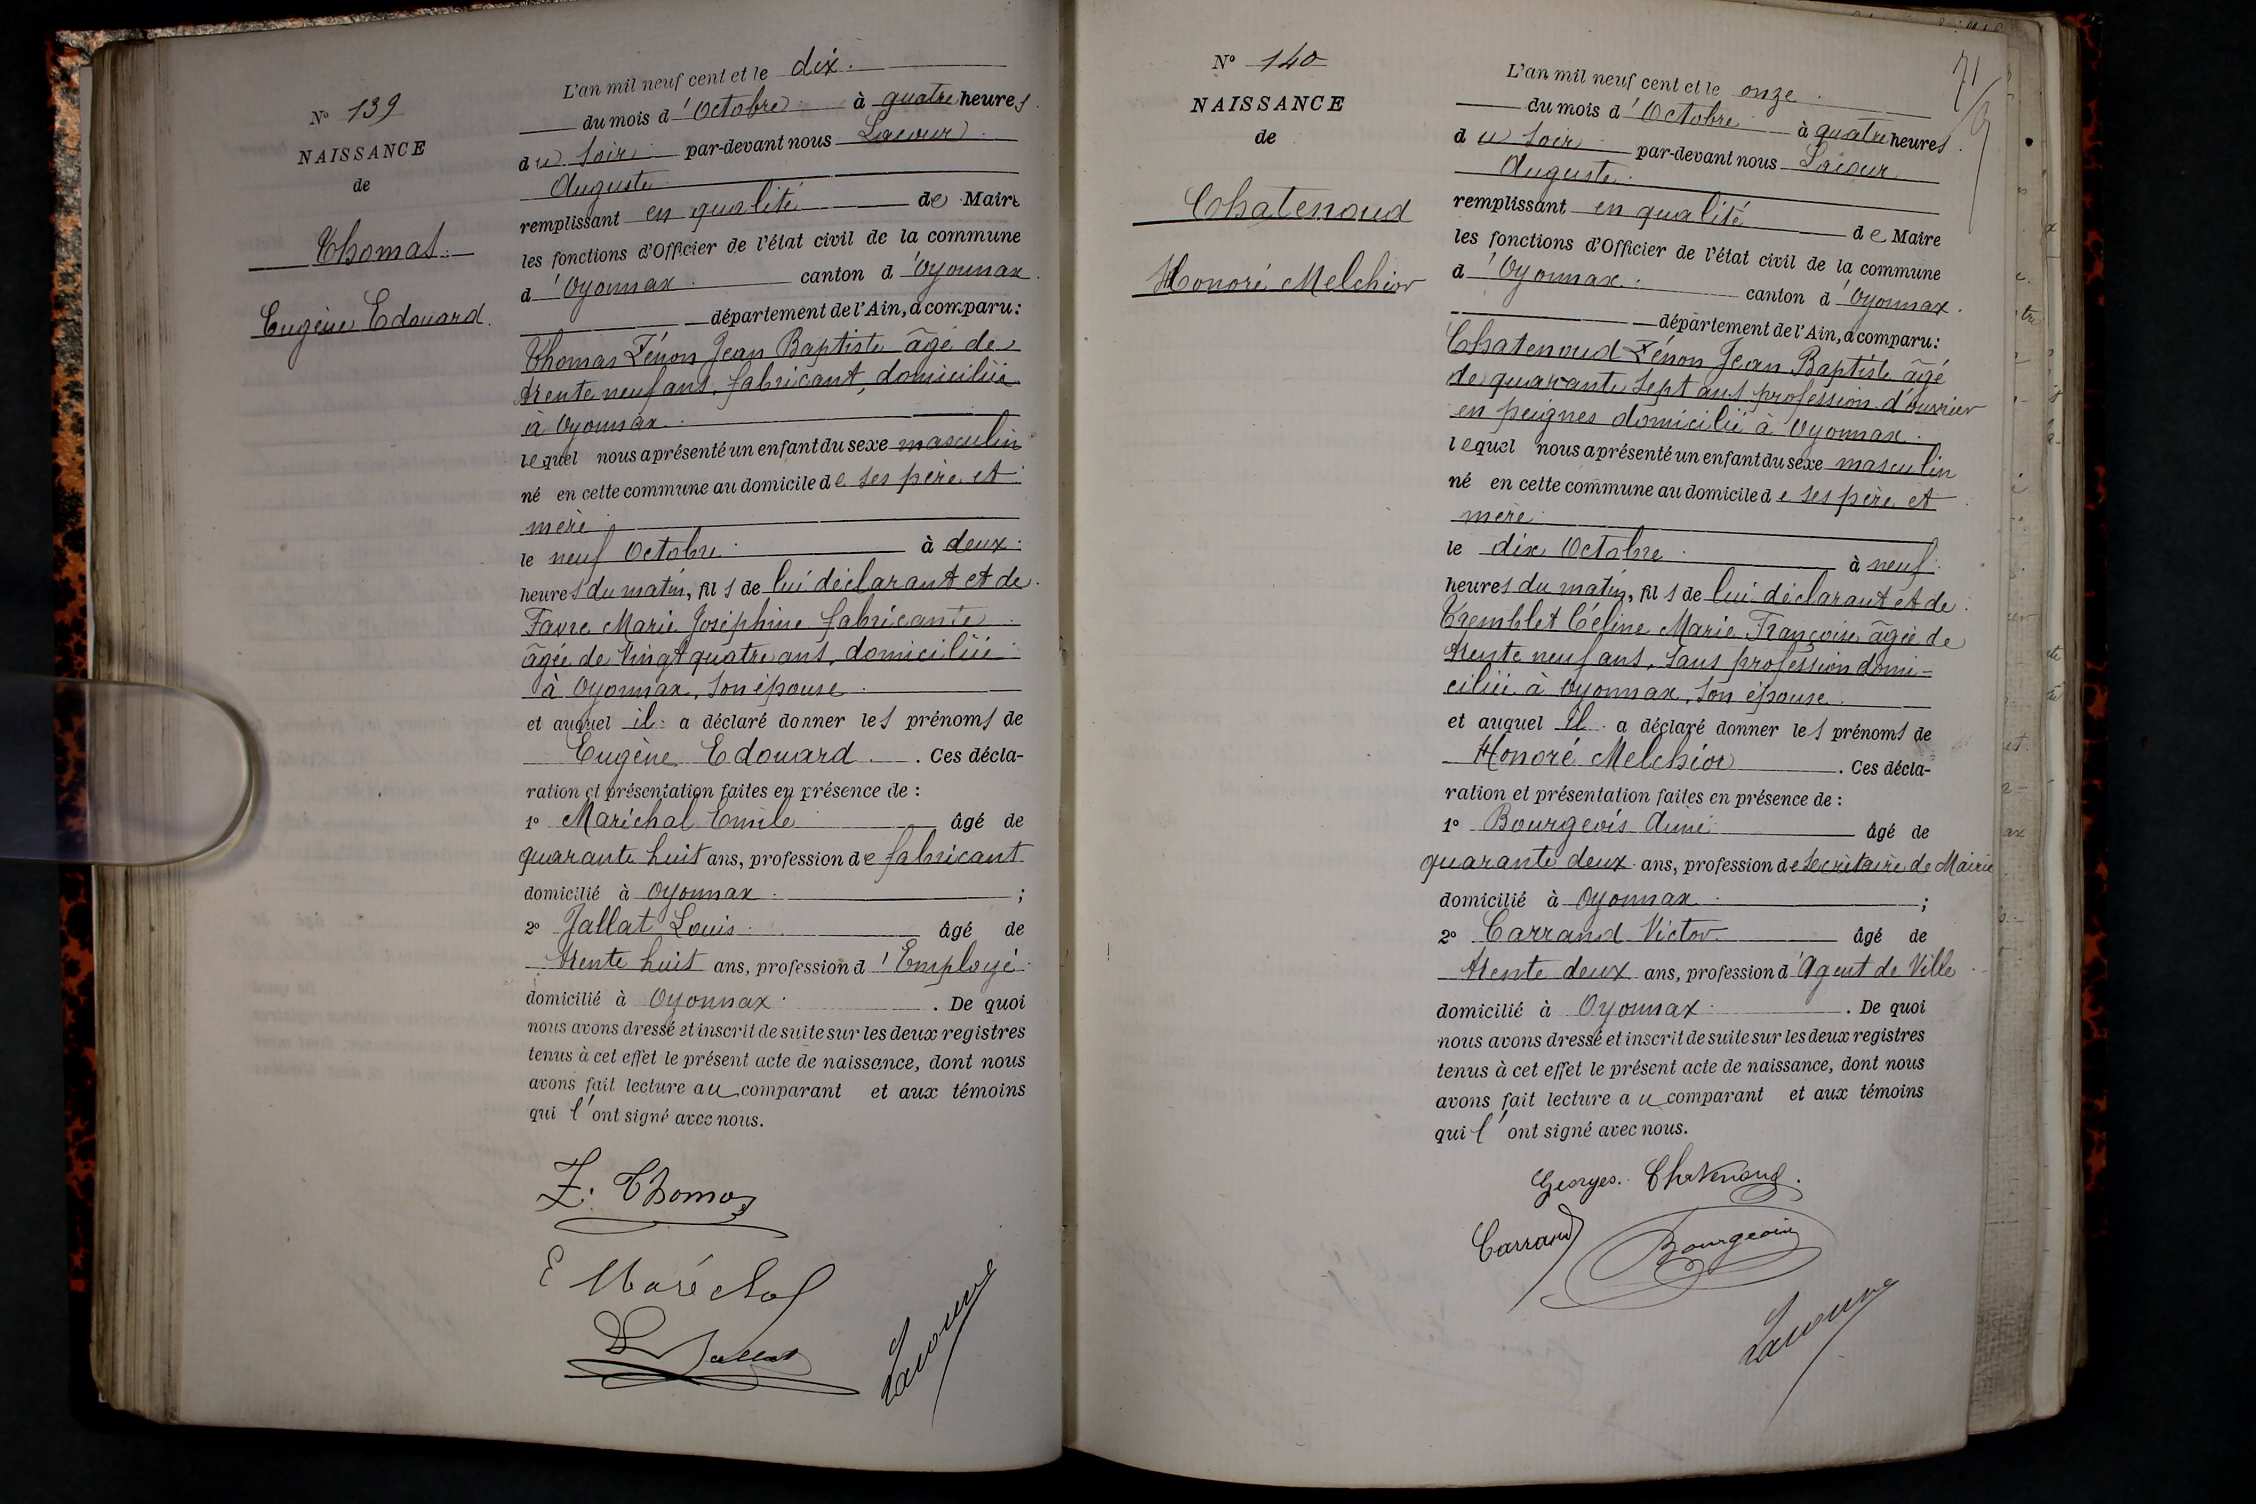 N° 139
NAISSANCE
de
Thomas
Eugène Edouard.
L'an mil neuf cent et le dix.
du mois d'Octobre à quatre heures.
du soir par-devant nous Lacour
Auguste
remplissant en qualité de Maire
les fonctions d'Officier de l'état civil de la commune
d'Oyonnax. canton d'Oyonnax.
département de l'Ain, a comparu:
Thomas Zénon Jean Baptiste âgé de
trente neuf ans, fabricant, domicilié
à Oyonnax.
lequel nous a présenté un enfant du sexe masculin
né en cette commune au domicile de ses père et
mère
le neuf Octobre à deux
heures du matin, fils de lui déclarant et de
Favre Marie Joséphine fabricante
âgée de Vingt quatre ans, domiciliée
à Oyonnax, son épouse
et auquel il a déclaré donner les prénoms de
Eugène Edouard. Ces décla-
ration et présentation faites en présence de :
1° Maréchal Emile âgé de
quarante huit ans, profession de fabricant
domicilié à Oyonnax. ;
2° Jallat Louis âgé de
trente huit ans, profession d'Employé
domicilié à Oyonnax. De quoi
nous avons dressé et inscrit de suite sur les deux registres
tenus à cet effet le présent acte de naissance, dont nous
avons fait lecture au comparant et aux témoins
qui l'ont signé avec nous.
Z. Thomas
E Maréchal
L Jallat
Lacour
71
N° 140
NAISSANCE
de
Chatenoud
Honoré Melchior
L'an mil neuf cent et le onze.
du mois d'Octobre à quatre heures.
du soir par-devant nous Lacour
Auguste.
remplissant en qualité de Maire
les fonctions d'Officier de l'état civil de la commune
d'Oyonnax. canton d'Oyonnax.
département de l'Ain, a comparu:
Chatenoud Zénon Jean Baptiste âgé
de quarante sept ans profession d'ouvrier
en peignes domicilié à Oyonnax.
lequel nous a présenté un enfant du sexe masculin
né en cette commune au domicile de ses père et
mère
le dix Octobre à neuf
heures du matin, fils de lui déclarant et de
Tremblet Céline Marie Françoise âgée de
trente neuf ans, sans profession domi-
ciliée à Oyonnax, son épouse
et auquel il a déclaré donner les prénoms de
Honoré Melchior. Ces décla-
ration et présentation faites en présence de :
1° Bourgeois Aimé âgé de
quarante deux ans, profession de Secrétaire de Mairie
domicilié à Oyonnax ;
2° Carrand Victor âgé de
trente deux ans, profession d'Agent de Ville
domicilié à Oyonnax. De quoi
nous avons dressé et inscrit de suite sur les deux registres
tenus à cet effet le présent acte de naissance, dont nous
avons fait lecture au comparant et aux témoins
qui l'ont signé avec nous.
Georges. Chatenoud.
Carrand Bourgeois
Lacour